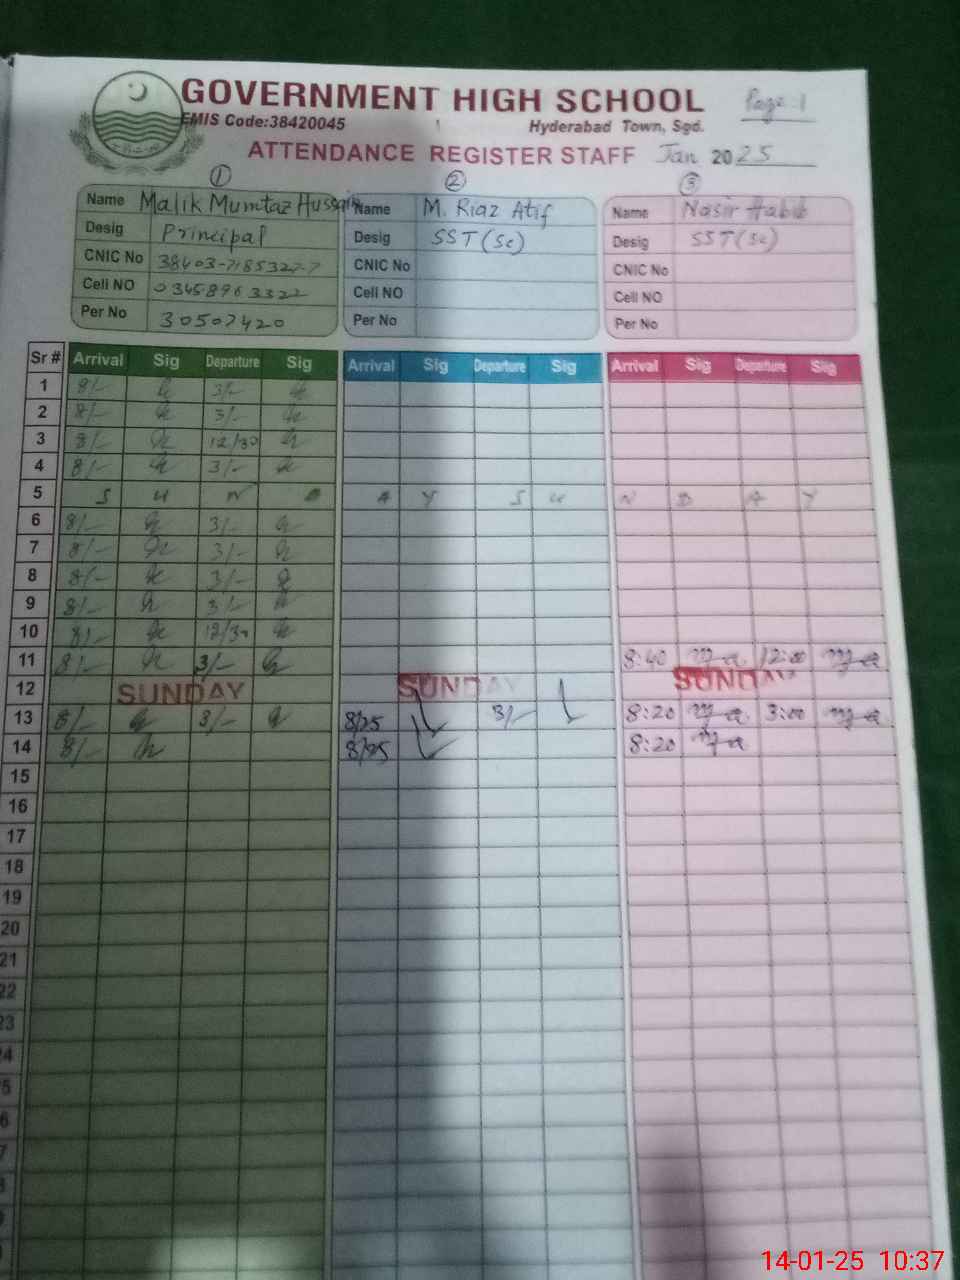 GOVERNMENT HIGH SCHOOL
Page 1
EMIS Code:38420045
Hyderabad Town, Sgd.
ATTENDANCE REGISTER STAFF Jan 2025
1 2 3
Name Malik Mumtaz Hussain Name M. Riaz Atif Name Nasir Habib
Desig Principal Desig SST (Sc) Desig SST (Sc)
CNIC No 38403-7185327-7 CNIC No CNIC No
Cell NO 03458963322 Cell NO Cell NO
Per No 30507420 Per No Per No
Sr # Arrival Sig Departure Sig Arrival Sig Departure Sig Arrival Sig Departure Sig
1 8/- 3/-
2 8/- 3/-
3 8/- 12/30
4 8/- 3/-
5 S U N D A Y S U N D A Y
6 8/- 3/-
7 8/- 3/-
8 8/- 3/-
9 8/- 3/-
10 8/- 12/30
11 8/- 3/- 8:40 12:00
12 SUNDAY SUNDAY SUNDAY
13 8/- 3/- 8/25 3/- 8:20 3:00
14 8/- 8/25 8:20
15
16
17
18
19
20
21
22
23
14-01-25 10:37